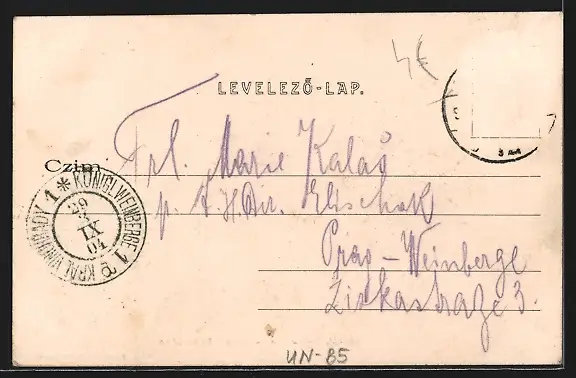 4€
LEVELEZŐ-LAP.
Czim
Frl. Marie Kalaš
p. A. H. Dir. Elischak
Prag - Weinberge
Ziskastraße 3.
KÖNIGL. WEINBERGE 1
KRÁL. VINOHRADY 1
29
3
IX
04
UN-85